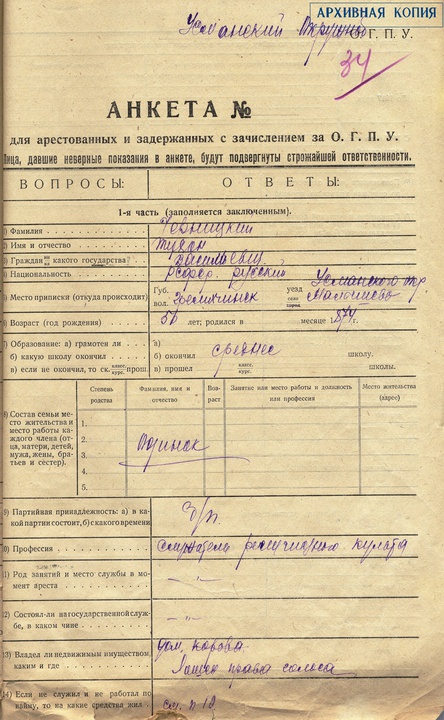 АРХИВНАЯ КОПИЯ
Усманский
О. Г. П. У.
34
АНКЕТА №
для арестованных и задержанных с зачислением за О. Г. П. У.
Лица, давшие неверные показания в анкете, будут подвергнуты строжайшей ответственности.
ВОПРОСЫ: ОТВЕТЫ:
1-я часть (заполняется заключенным).
1) Фамилия
2) Имя и отчество
Васильевич
3) Граждан ин ка какого государства
4) Национальность РСФСР. русский
5) Место приписки (откуда происходит) Губ. уезд Усманского
вол. село город
6) Возраст (год рождения) лет; родился в месяце 1874 г.
7) Образование: а) грамотен ли а)
б) какую школу окончил б) окончил среднее школу.
в) если не окончил, то ск. класс. курс. прош в) прошел класс. курс. школы.
Степень родства Фамилия, имя и отчество Возраст Занятие или место работы и должность или профессия Место жительства (адрес)
8) Состав семьи место жительства и место работы каждого члена (отца, матери, детей, мужа, жены, братьев и сестер).
1.
2. Одинок
3.
4.
5.
9) Партийная принадлежность: а) в какой партии состоит, б) с какого времени
Б/п.
10) Профессия служитель религиозного культа
11) Род занятий и место службы в момент ареста - " -
12) Состоял-ли на государственной службе, в каком чине - " -
13) Владел ли недвижимым имуществом, каким и где дом, корова
Лишен права голоса
14) Если не служил и не работал по найму, то на какие средства жил см. п. 10